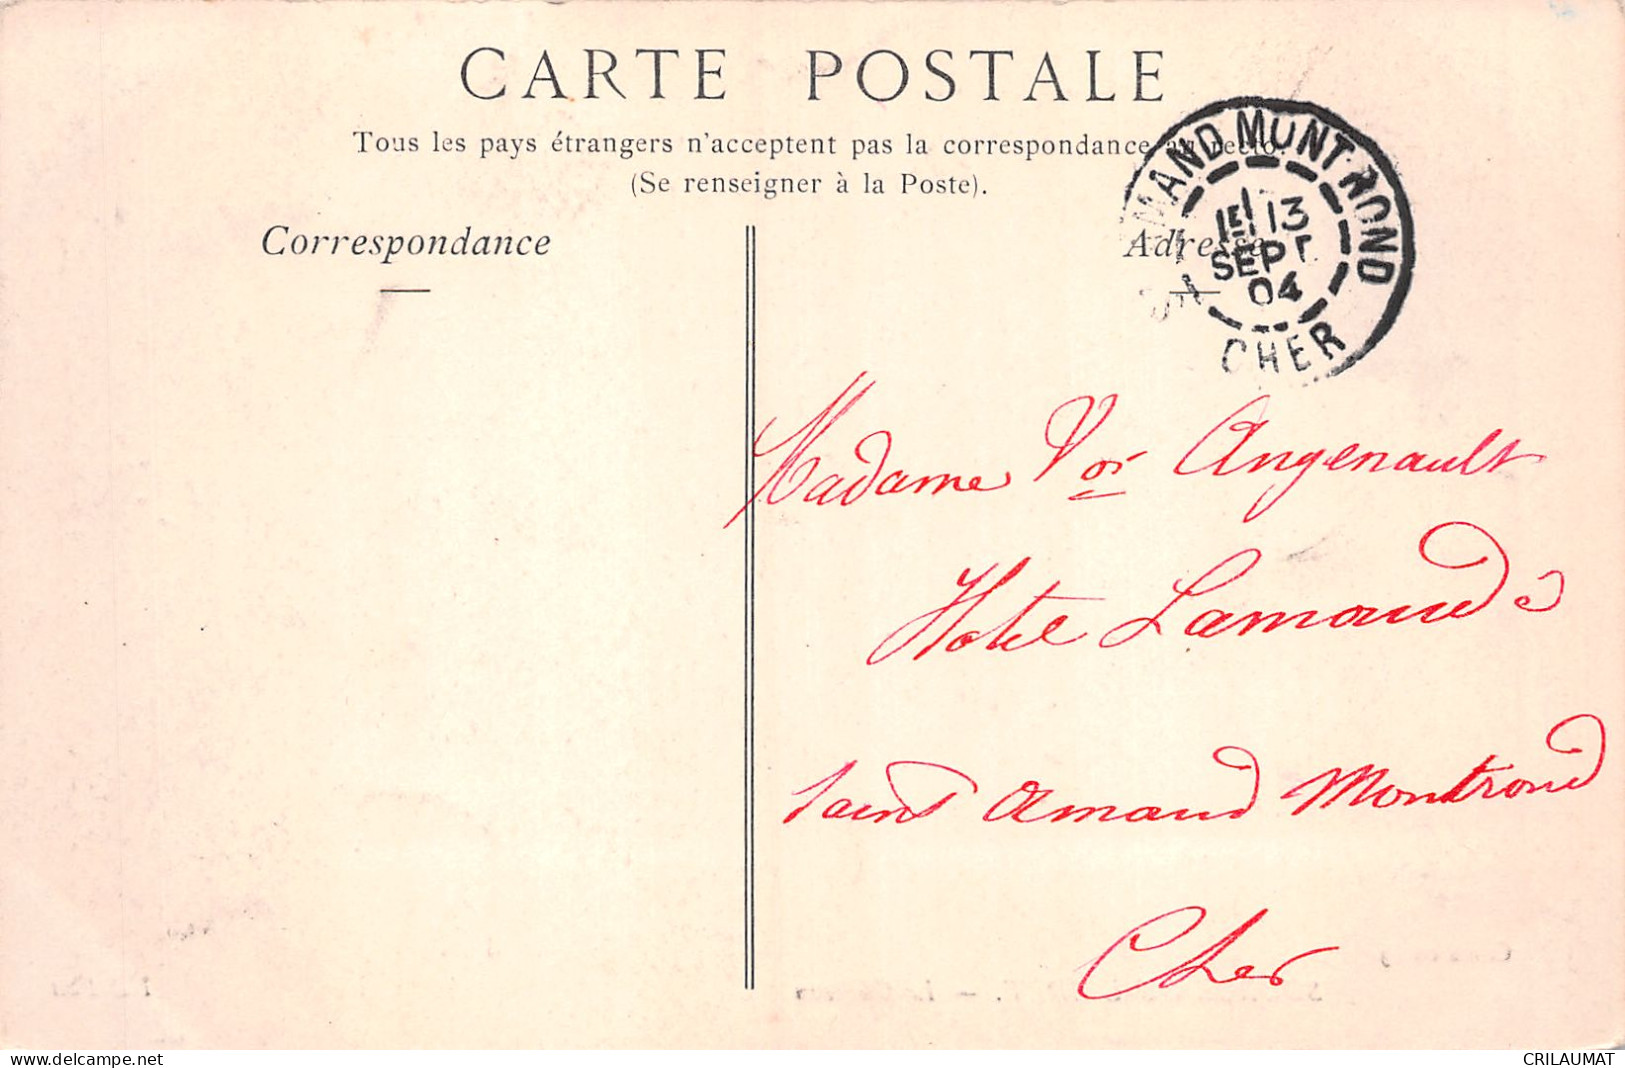 CARTE POSTALE
Tous les pays étrangers n'acceptent pas la correspondance au recto.
(Se renseigner à la Poste).
Correspondance
Adresse
ST AMAND MONT-ROND
1E 13
SEPT
04
CHER
Madame Vor Angenault
Hotel Lamoud
Saint Amand Montrond
Cher
www.delcampe.net
CRILAUMAT